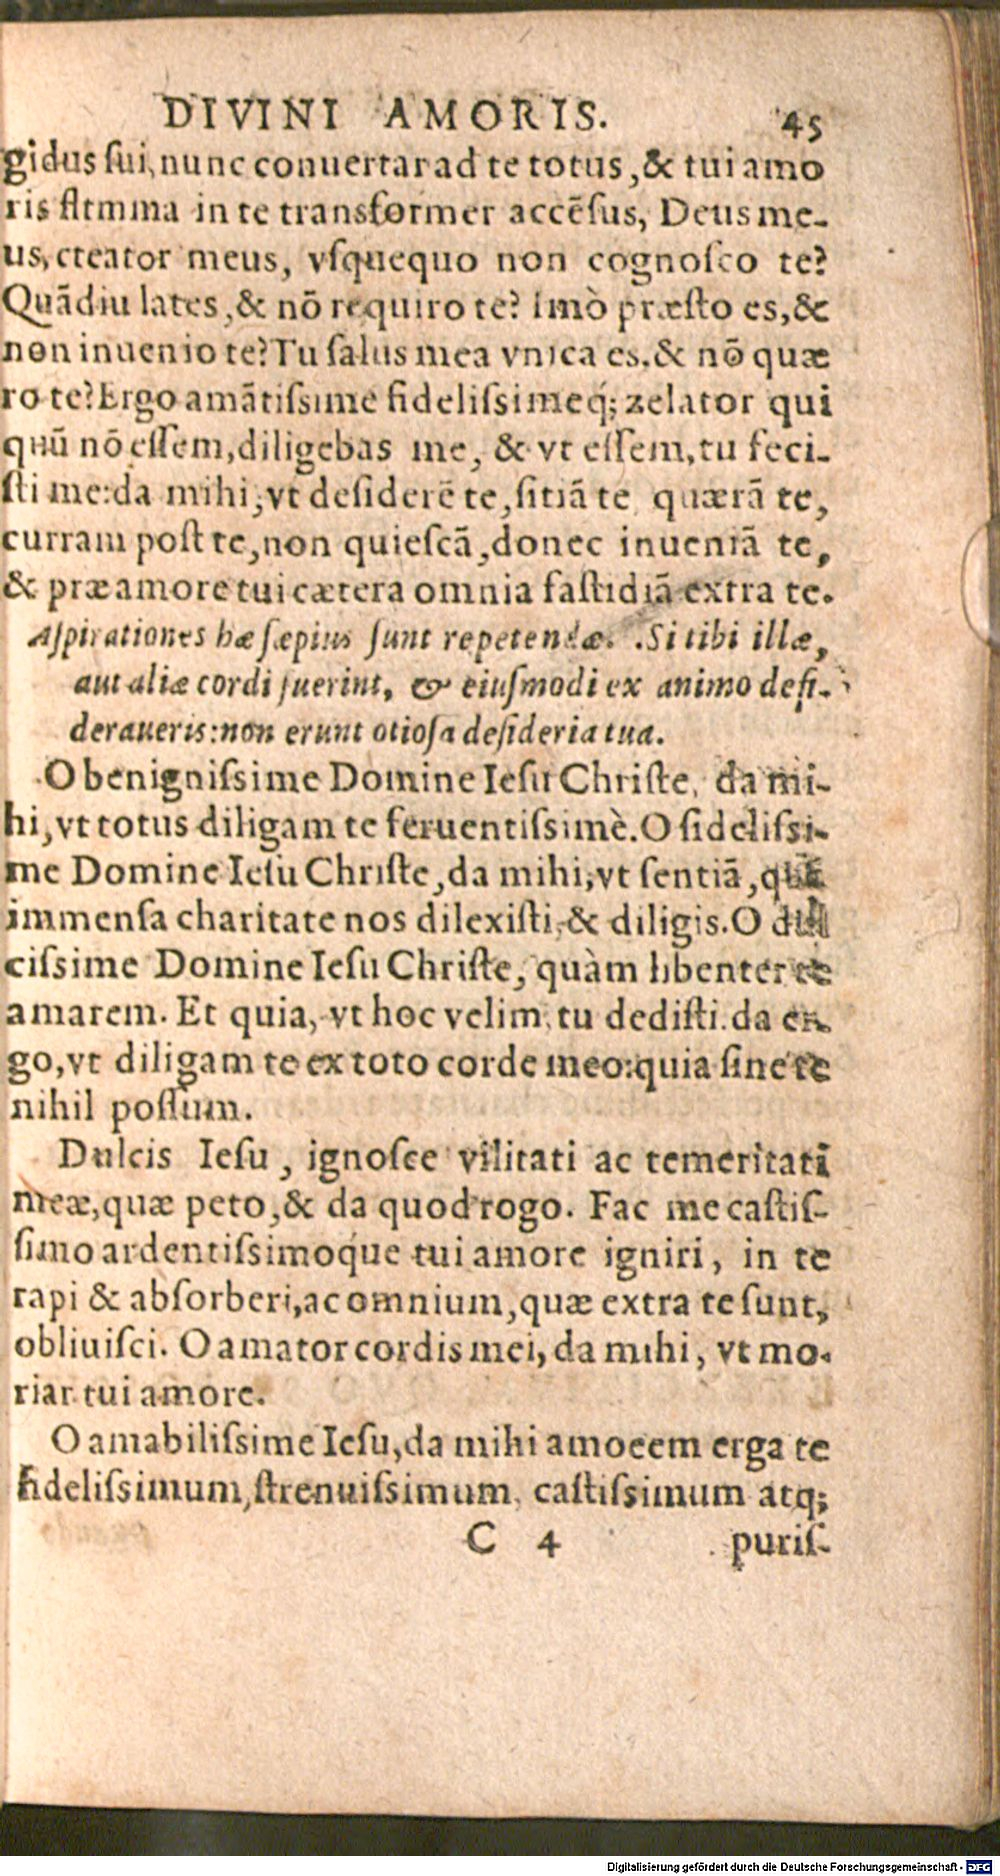 DIVINI AMORIS. 45
gidus fui, nunc conuertar ad te totus, & tui amo
ris flamma in te transformer accẽsus, Deus me-
us, creator meus, vſquequo non cognoſco te?
Quãdiu lates, & nõ requiro te? Imò præſto es, &
non inuenio te? Tu ſalus mea vnica es, & nõ quæ
ro te? Ergo amãtiſsime fideliſsimeq́; zelator qui
quũ nõ eſſem, diligebas me, & vt eſſem, tu feci-
ſti me: da mihi, vt deſiderẽ te, ſitiã te quærã te,
curram poſt te, non quieſcã, donec inueniã te,
& præ amore tui cætera omnia faſtidiã extra te.
Aſpirationes hæ ſæpius ſunt repetendæ. Si tibi illæ,
aut aliæ cordi fuerint, & eiuſmodi ex animo deſi-
deraueris: non erunt otioſa deſideria tua.
O benigniſsime Domine Ieſu Chriſte, da mi-
hi, vt totus diligam te feruentiſsimè. O fideliſsi-
me Domine Ieſu Chriſte, da mihi, vt ſentiã, quã
immenſa charitate nos dilexiſti, & diligis. O dul
ciſsime Domine Ieſu Chriſte, quàm libenter te
amarem. Et quia, vt hoc velim, tu dediſti. da er-
go, vt diligam te ex toto corde meo: quia ſine te
nihil poſſum.
Dulcis Ieſu, ignoſce vilitati ac temeritati
meæ, quæ peto, & da quod rogo. Fac me caſtiſ-
ſimo ardentiſsimoq́ue tui amore igniri, in te
rapi & abſorberi, ac omnium, quæ extra te ſunt,
obliuiſci. O amator cordis mei, da mihi, vt mo-
riar tui amore.
O amabiliſsime Ieſu, da mihi amorem erga te
fideliſsimum, ſtrenuiſsimum, caſtiſsimum atq;
C 4 puriſ-
Digitalisierung gefördert durch die Deutsche Forschungsgemeinschaft - DFG